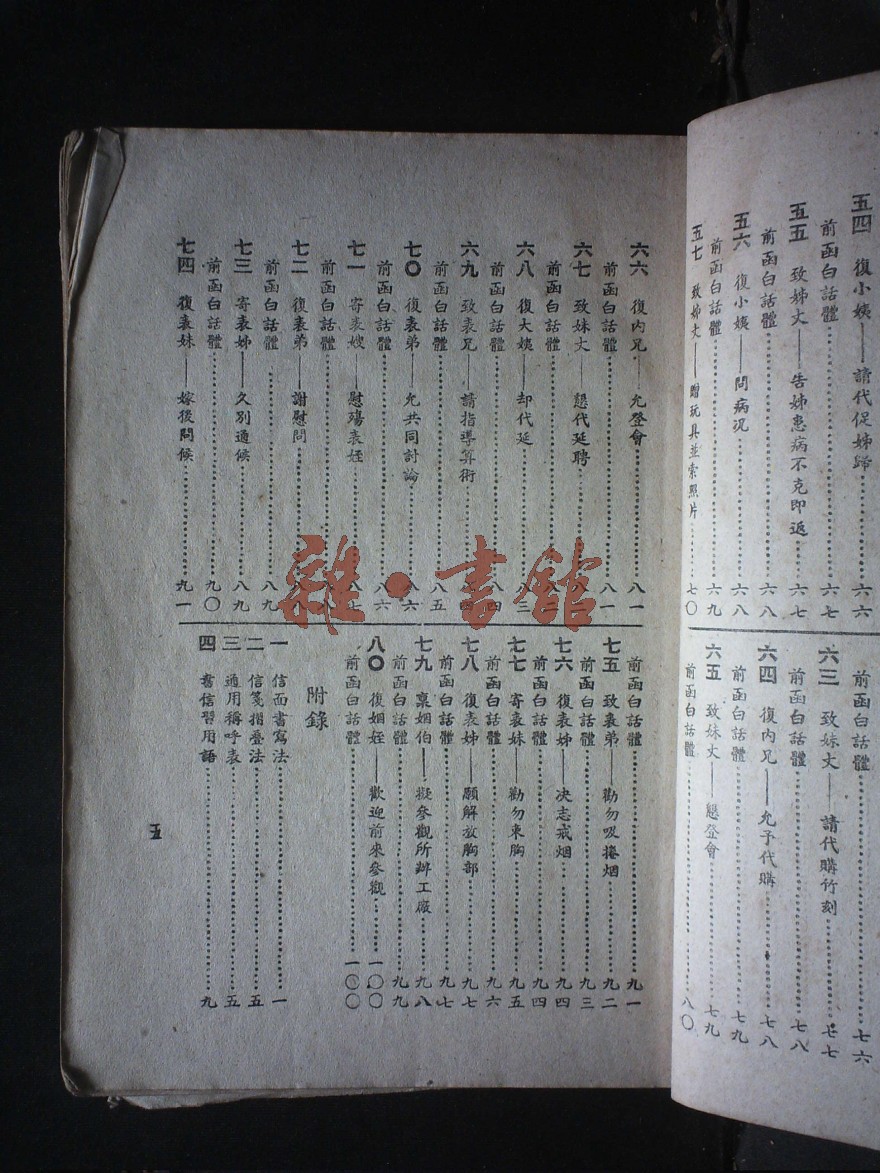 五四 復小姨——請代促姊歸……六六
前函白話體……六七
五五 致姊丈——告姊患病不克即返……六七
前函白話體……六八
五六 復小姨——問病况……六八
前函白話體……六九
五七 致姊丈——贈玩具並索照片……七〇
前函白話體……七六
六三 致妹丈——請代購竹刻……七七
前函白話體……七八
六四 復內兄——允予代購……七八
前函白話體……七九
六五 致妹丈——懇登會……七九
前函白話體……八〇
六六 復內兄——允登會……八一
前函白話體……八一
六七 致妹丈——懇代延聘……八
前函白話體……八二
六八 復大姨——却代延……八三
前函白話體……八四
六九 致表兄——請指導算術……八四
前函白話體……八五
七〇 復表弟——允共同討論……八六
前函白話體……八六
七一 寄表嫂——慰殤表姪……八七
前函白話體……八八
七二 復表弟——謝慰問……八八
前函白話體……八九
七三 寄表姊——久別通候……八九
前函白話體……九〇
七四 復表妹——嫁後問候……九一
前函白話體……九一
七五 致表弟——勸勿吸捲烟……九二
前函白話體……九三
七六 復表姊——决志戒烟……九四
前函白話體……九四
七七 寄表妹——勸勿束胸……九五
前函白話體……九六
七八 復表姊——願解放胸部……九七
前函白話體……九七
七九 禀姻伯——擬參觀所辦工廠……九八
前函白話體……九九
八〇 復姻姪——歡迎前來參觀……一〇〇
前函白話體……一〇〇
附錄
一 信面書寫法……一
二 信箋摺叠法……五
三 通用稱呼表……五
四 書信習用語……九
五
雜·書館